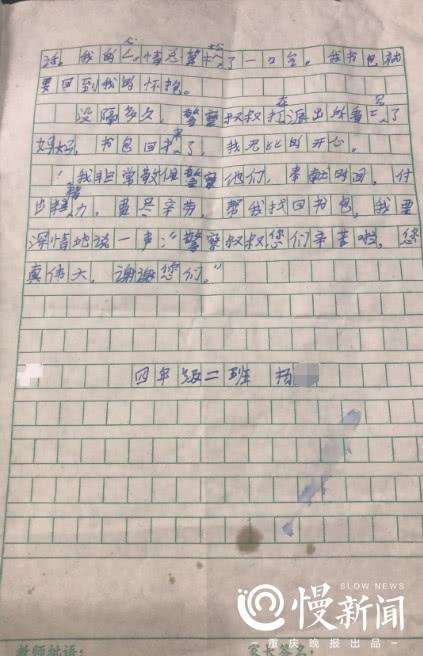 话，我的心情已经松了一口气。我书包就
要回到我的怀抱。
没隔多久，警察叔叔打派出所看见了
妈妈，书包回来了，我无比的开心。
我非常敬佩警察他们，奉献时间，付
出努力，费尽辛劳，帮我找回书包，我要
深情地说一声：“警察叔叔您们辛苦啦，您
真伟大，谢谢您们。”
四年级二班 杨
SLOW NEWS
慢新闻
重庆晚报出品
教师批语：
家长签名：